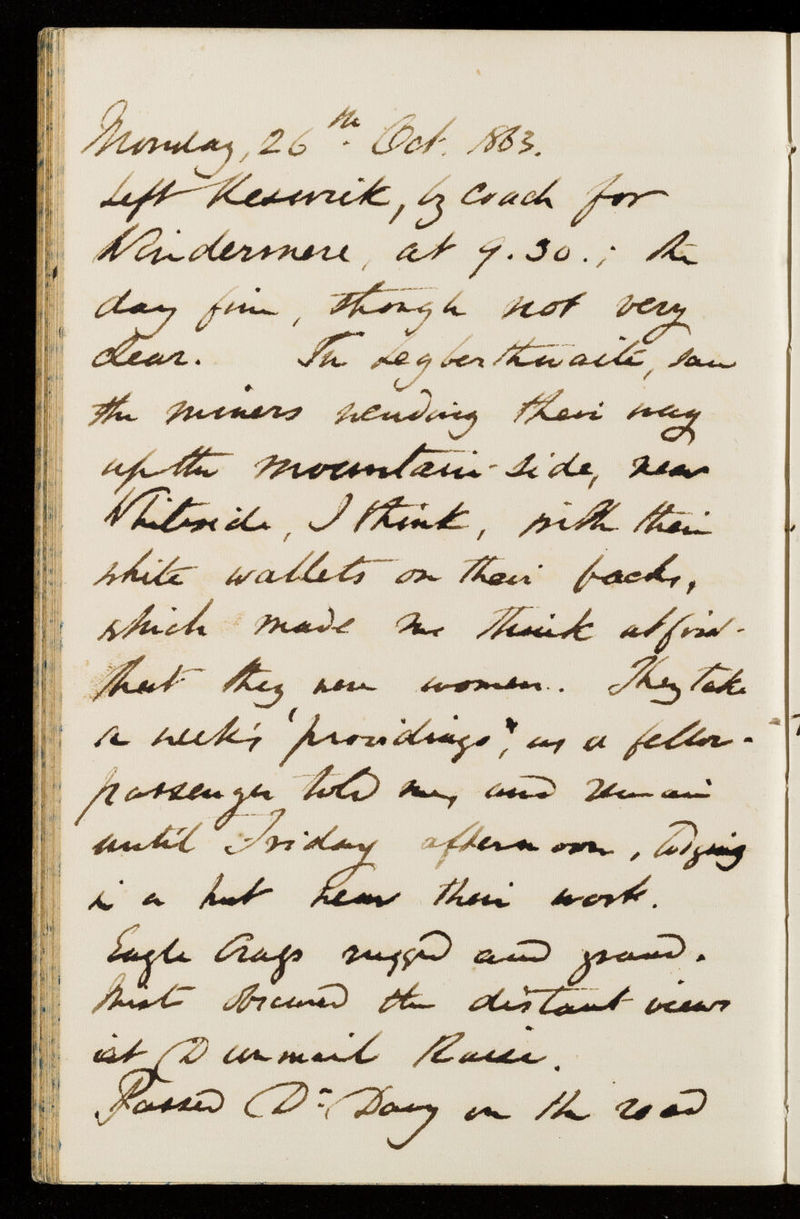 Monday, 26th. Oct. 1863.
Left Keswick, by coach for
Windermere, at 9.30.; the
day fine, though not very
clear. In Legberthwaite, saw
the miners wending their way
up the mountain-side, near
Whiteside, I think, with their
white wallets on their backs,
which made me think at first
that they were women. They take
a week's 'providings', as a fellow-
passenger told me, and remain
until Friday afternoon, lodging
in a hut near their work.
Eagle Crags rugged and grand.
Mist obscured the distant views
at Dunmail Raise.
Passed Dr. Davy on the road